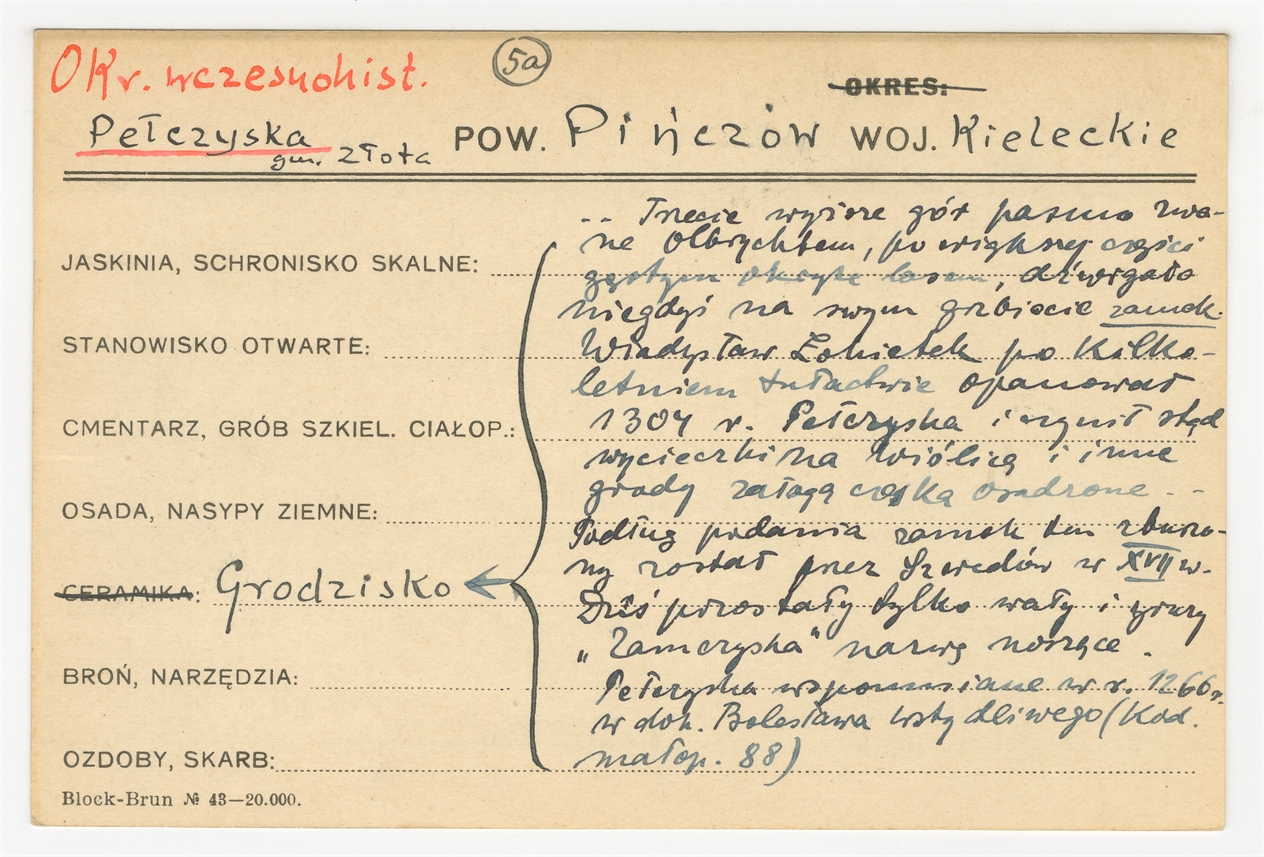 Okr. wczesnohist.
5a
OKRES:
Pełczyska
gm. Złota
POW. Pińczów WOJ. Kieleckie
.. Trzecie wyższe gór pasmo zwa-
ne Olbrychtem, po większej części
JASKINIA, SCHRONISKO SKALNE:
gęstym okryte lasem, dźwigało
niegdyś na swym grzbiecie zamek.
STANOWISKO OTWARTE:
Władysław Łokietek po kilko-
letniem tułactwie opanował
CMENTARZ, GRÓB SZKIEL. CIAŁOP.:
1304 r. Pełczyska i czynił stąd
wycieczki na Wiślicę i inne
grody załogą czeską osadzone . -
OSADA, NASYPY ZIEMNE:
Podług podania zamek ten zburzo-
ny został przez Szwedów w XVII w.
CERAMIKA: Grodzisko
Dziś pozostały tylko wały i gruzy
„Zamczyska" nazwę noszące .
BROŃ, NARZĘDZIA:
Pełczyska wspomniane w r. 1266 r.
w dok. Bolesława Wstydliwego (Kod.
OZDOBY, SKARB:
małop. 88)
Block-Brun № 43—20.000.